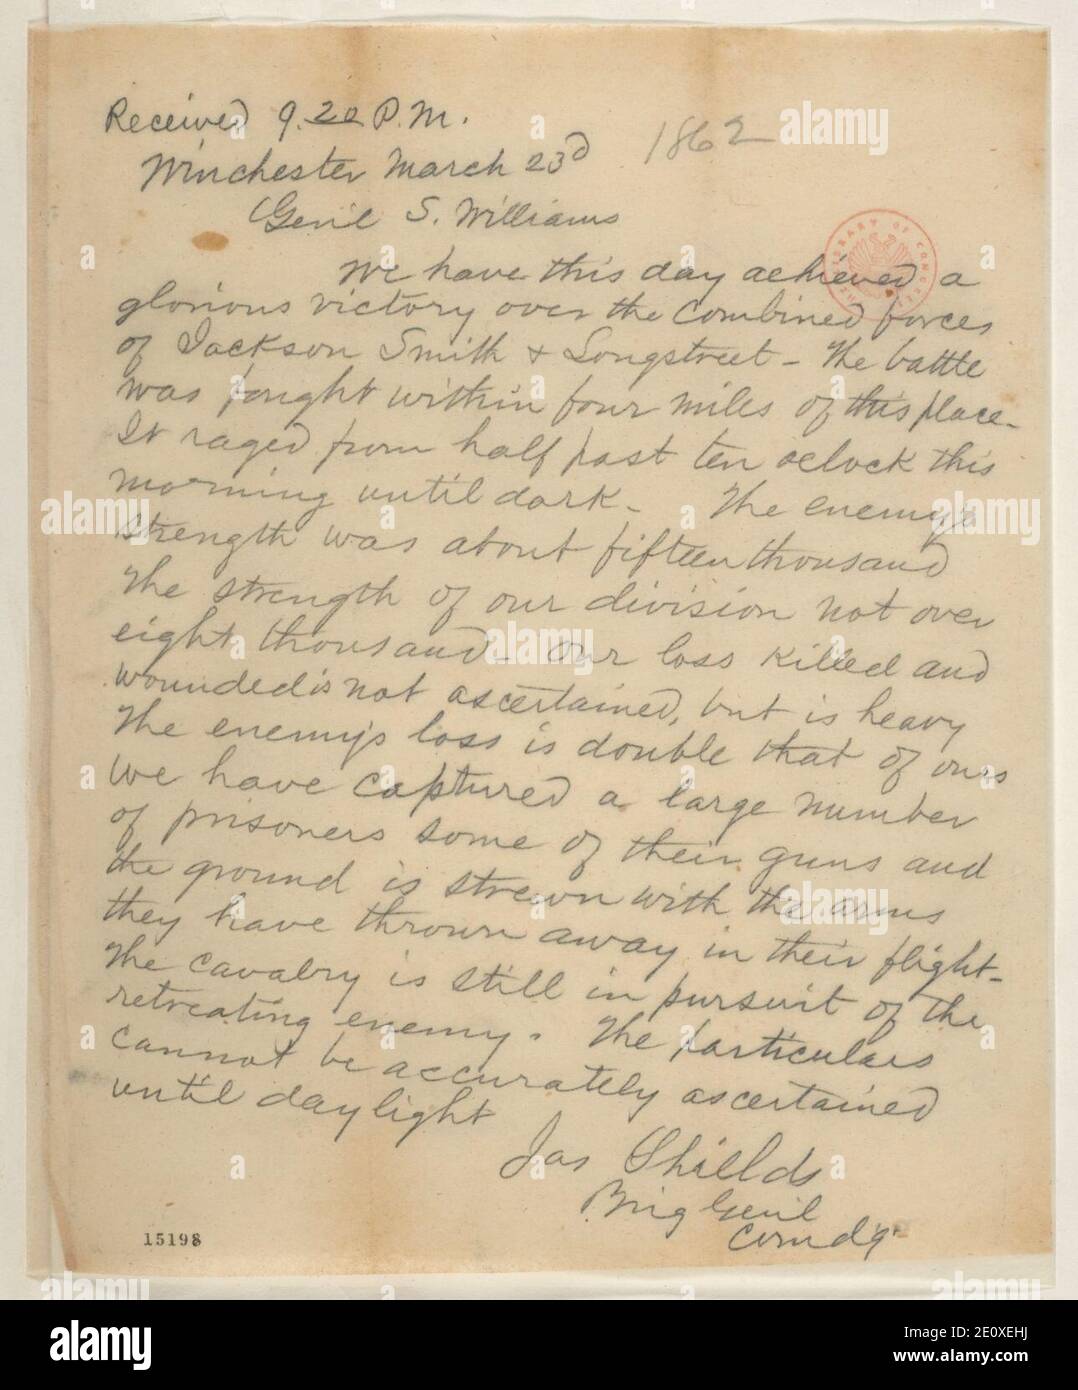 Received 9.20 P.M.
Winchester March 23d 1862
Genl S. Williams
We have this day achieved a
glorious victory over the combined forces
of Jackson Smith & Longstreet - The battle
was fought within four miles of this place -
It raged from half past ten oclock this
morning until dark - The enemy's
strength was about fifteen thousand
The strength of our division not over
eight thousand - Our loss killed and
wounded is not ascertained, but is heavy
The enemy's loss is double that of ours
We have captured a large number
of prisoners some of their guns and
the ground is strewn with the arms
they have thrown away in their flight -
The cavalry is still in pursuit of the
retreating enemy. The particulars
cannot be accurately ascertained
until daylight
Jas Shields
Brig Genl
Comdg
15198
LIBRARY OF CONGRESS
alamy
alamy
Image ID: 2E0XEHJ
www.alamy.com